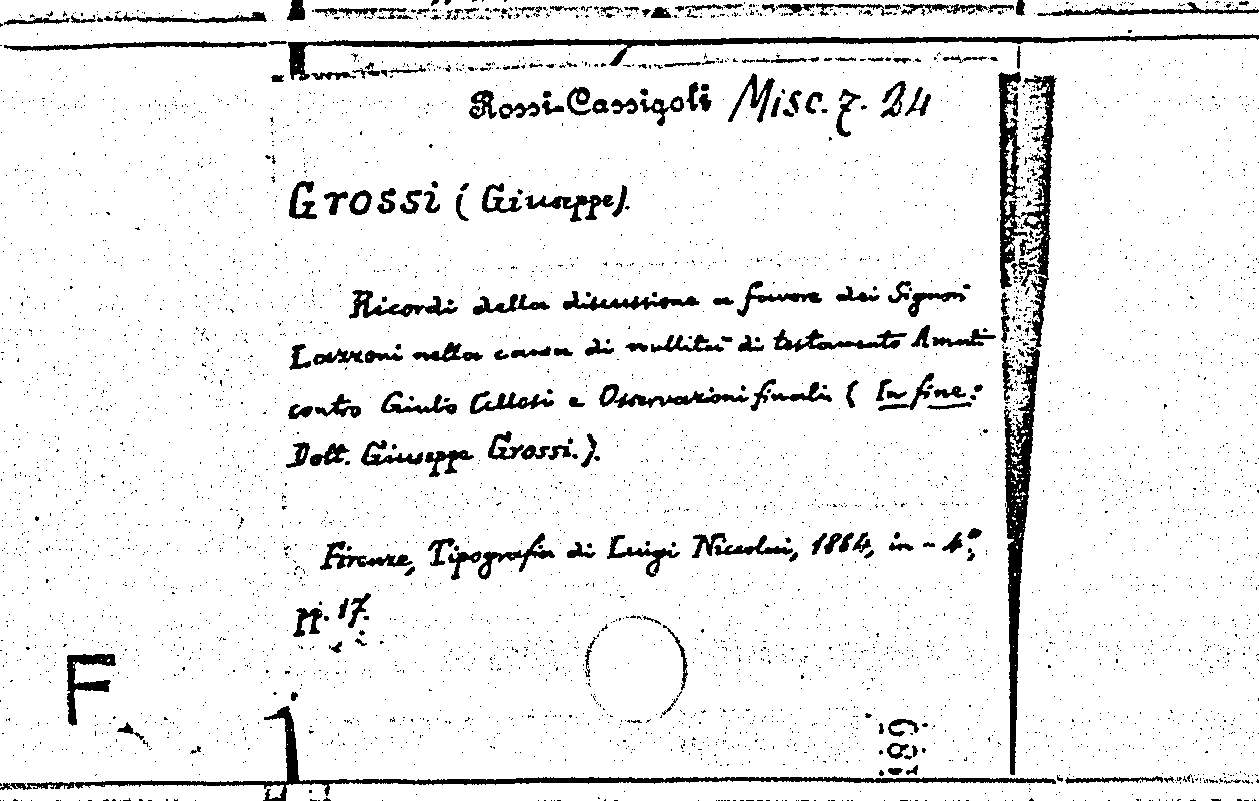 Rossi-Cassigoli Misc. 7. 24
Grossi (Giuseppe).
Ricordi della discussione a favore dei Signori
Lazzoni nella causa di nullità di testamento Amati
contro Giulio Cellesi e Osservazioni finali (In fine:
Dott. Giuseppe Grossi.).
Firenze, Tipografia di Luigi Niccolai, 1864, in-4°,
pp. 17.
F